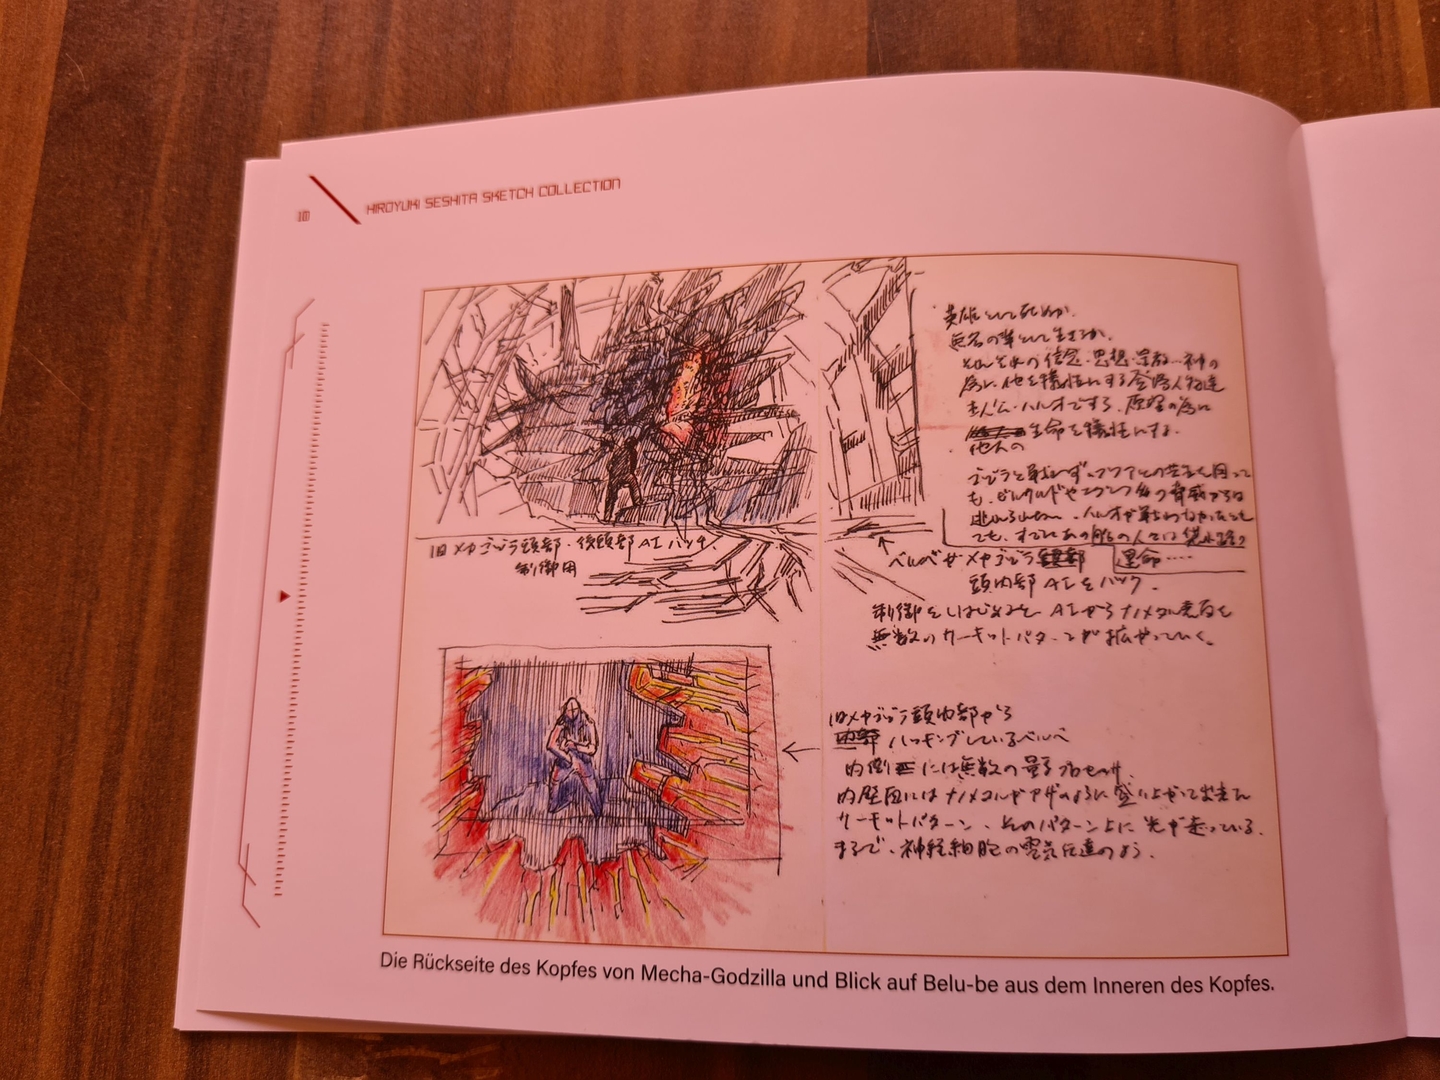 HIROYUKI SESHITA SKETCH COLLECTION
英雄として死ぬか.
無名の輩として生きるか.
それぞれの信念・思想・宗教…神の
為に他を犠牲にする登場人物達
主人公・ハルオですら、
生命を犠牲にする.
他人の
ゴジラと戦わず、フツアとの共生を図って
も、ビルサルドやエクシフ 脅威からは
逃れられない. ハルオが戦わなかったとし
ても、すでにあの
運命……
旧メカゴジラ頭部・後頭部AIハック.
制御用
ベルベ せメカゴジラ
頭内部AIをハック.
制御をしはじめると AIから ナノメタル 表面を
無数のサーキットパターンが拡がっていく。
旧メカゴジラ頭内部から
ハッキングしているベルベ
内側 には無数の量子プロセッサ.
内壁面にはナノメタルがアザのように盛り上がって出来た
サーキットパターン、そのパターン上に光が走っている.
まるで、神経細胞の電気伝達のよう.
Die Rückseite des Kopfes von Mecha-Godzilla und Blick auf Belu-be aus dem Inneren des Kopfes.